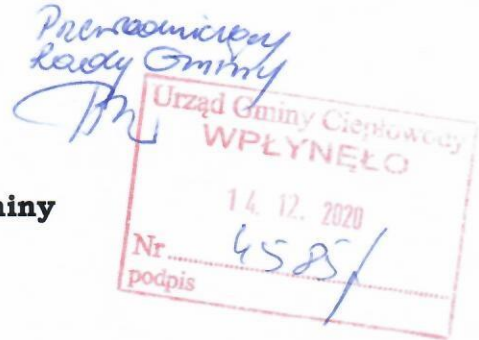 Przewodniczący
Rady Gminy
Urząd Gminy Ciepłowody
WPŁYNĘŁO
14. 12. 2020
Nr 4585/
podpis
miny